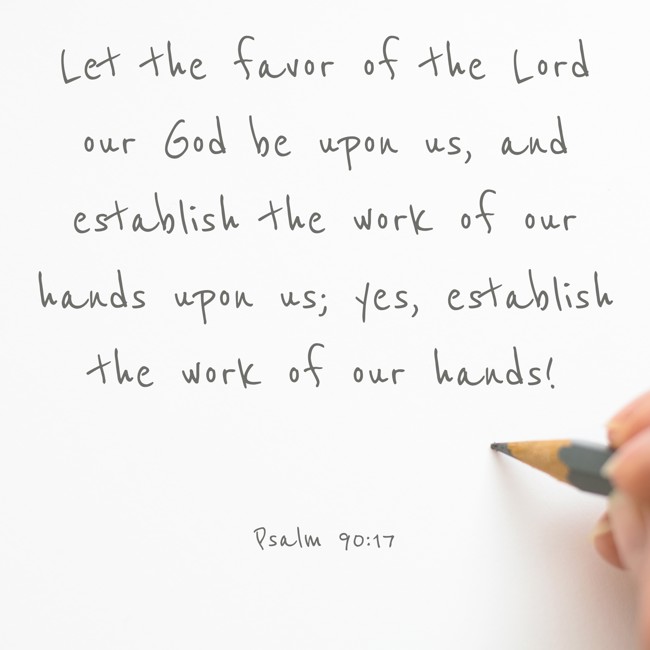 Let the favor of the Lord
our God be upon us, and
establish the work of our
hands upon us; yes, establish
the work of our hands!
Psalm 90:17